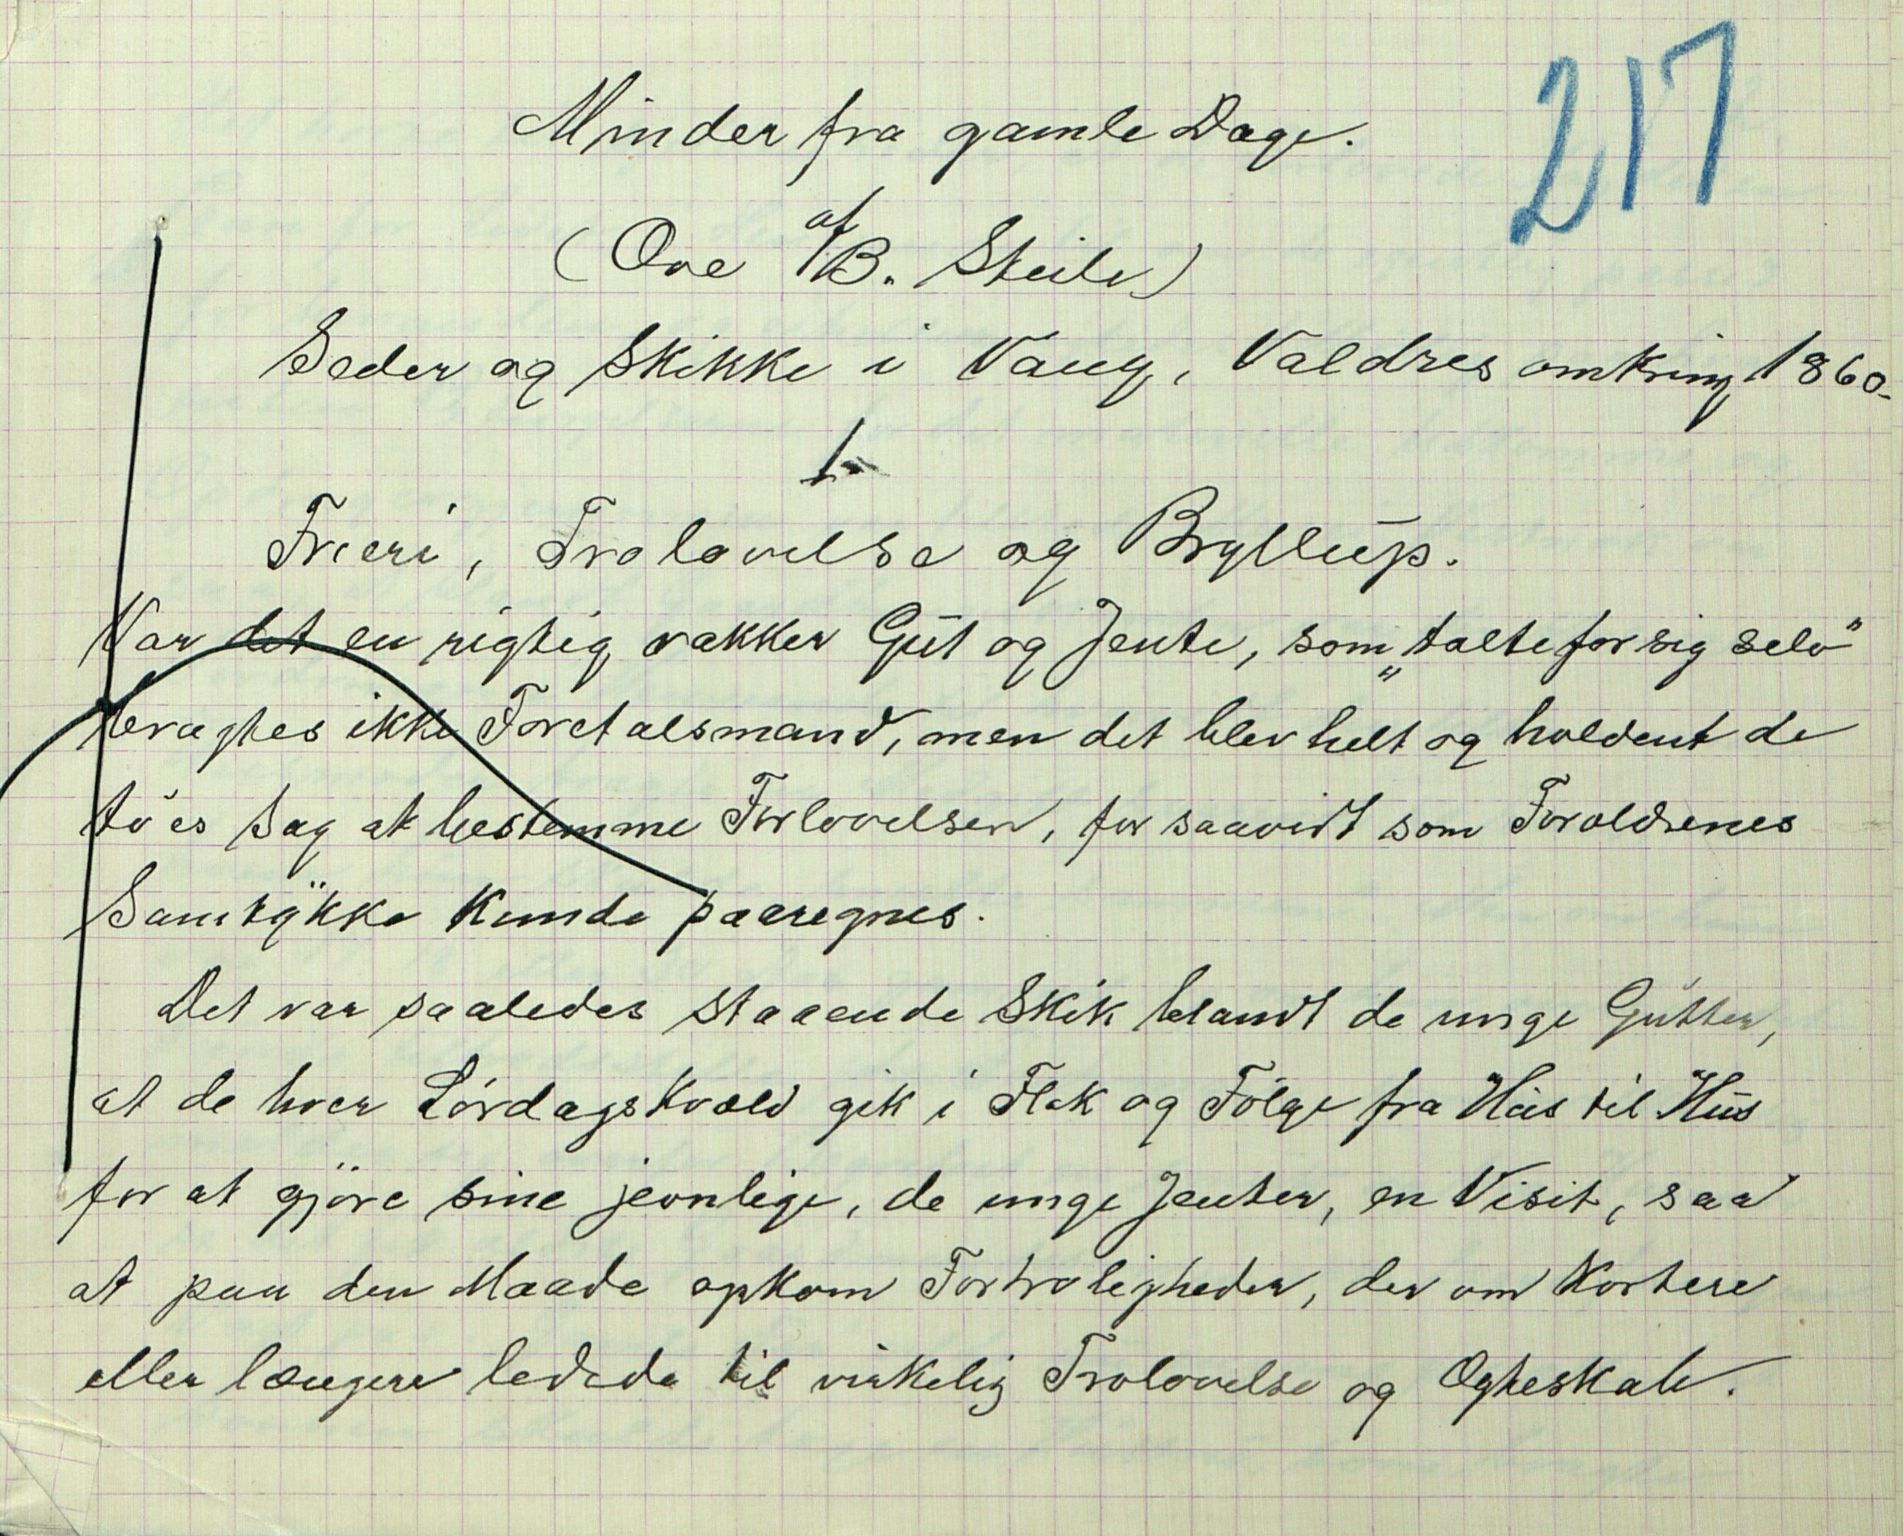 217
Minder fra gamle Dage.
(Ove af B. Steile)
Seder og Skikke i Vang, Valdres omkring 1860.
1.
Frieri, Trolovelse og Bryllup.
Var det en rigtig vakker Gut og Jente, som „talte for sig selv"
brugtes ikke Foretalsmand, men det blev helt og holdent de
to's Sag at bestemme Forlovelsen, for saavidt som Forældrenes
Samtykke kunde paaregnes.
Det var saaledes staaende Skik blandt de unge Gutter,
at de hver Lørdagskvæld gik i Flok og Følge fra Hus til Hus
for at gjøre sine jevnlige, de unge Jenter, en Visit, saa
at paa den Maade opkom Fortroligheder, der om kortere
eller længere ledede til virkelig Trolovelse og Ægteskab.